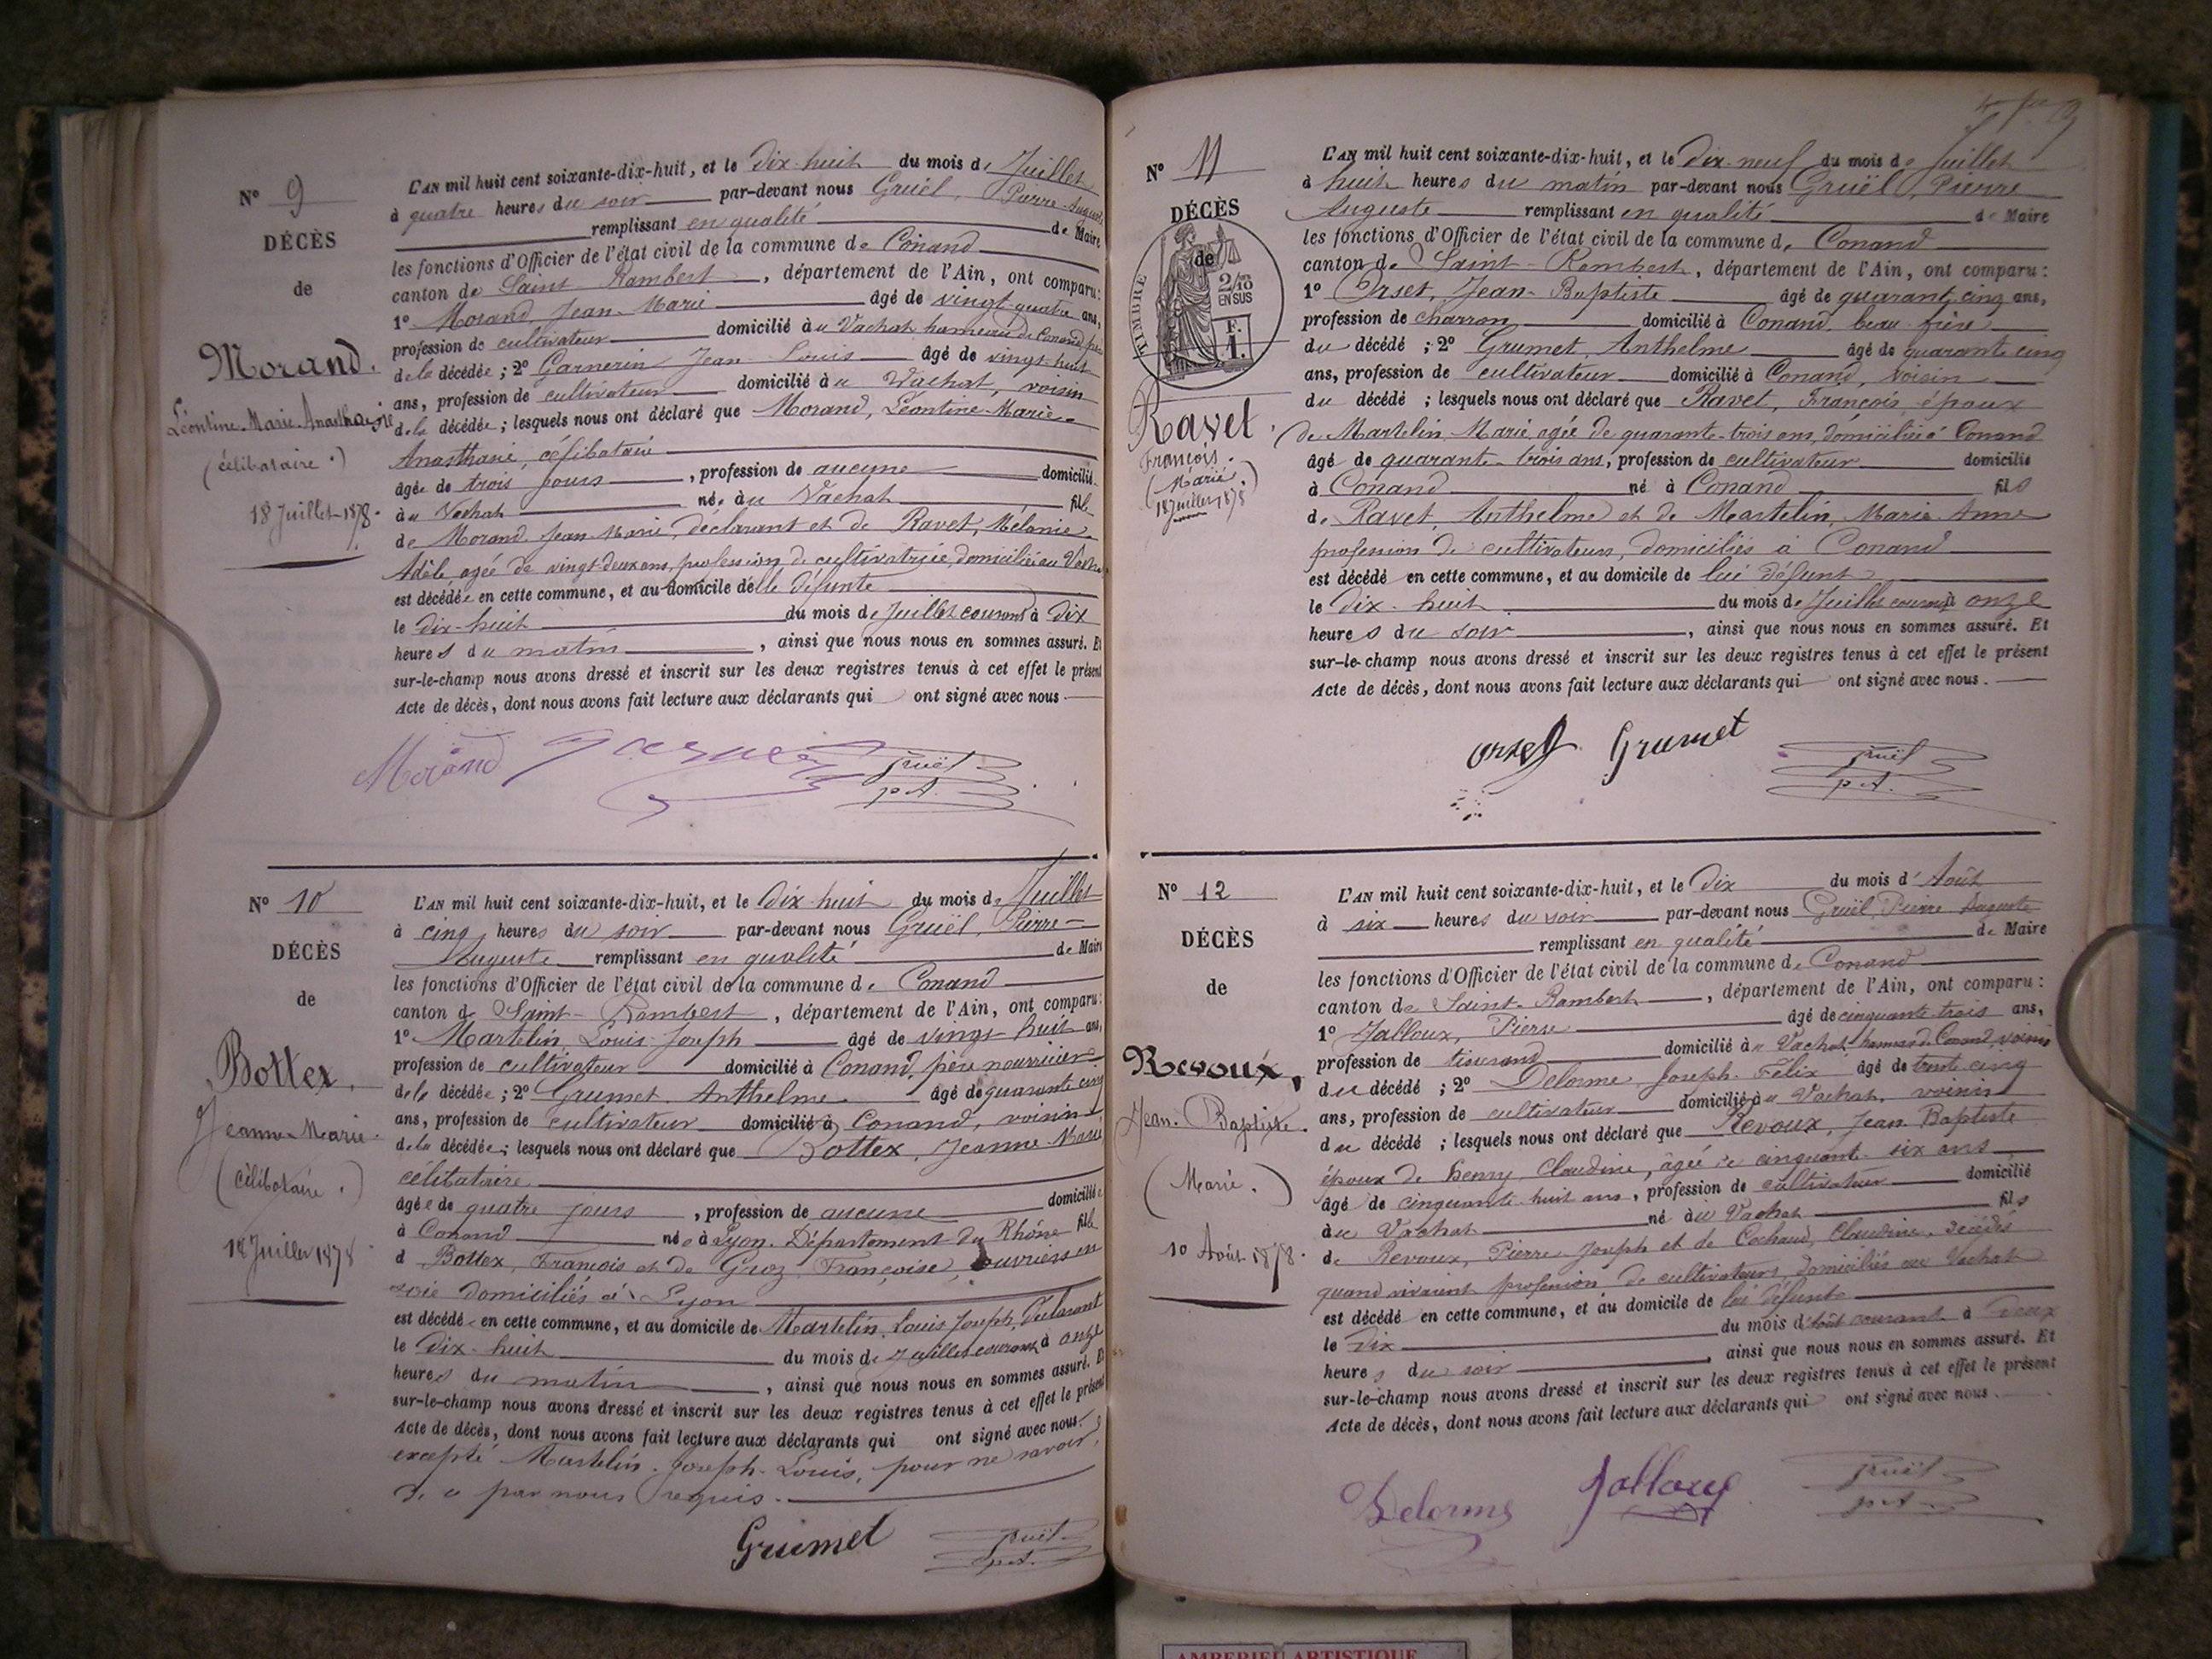 Nº 9
DÉCÈS
de
Morand.
Léontine-Marie-Anasthasie
(célibataire.)
18 Juillet 1878.
L'AN mil huit cent soixante-dix-huit, et le Dix-huit du mois de Juillet
à quatre heures du soir par-devant nous Gruël, Pierre-Auguste
remplissant en qualité de Maire
les fonctions d'Officier de l'état civil de la commune de Conand
canton de Saint-Rambert, département de l'Ain, ont comparu:
1º Morand, Jean-Marie âgé de vingt-quatre ans,
profession de cultivateur domicilié au Vachat hameau de Conand, père
de la décédée; 2º Garnerin Jean-Louis âgé de vingt-huit
ans, profession de cultivateur domicilié au Vachat, voisin
de la décédée; lesquels nous ont déclaré que Morand, Léontine-Marie-
Anasthasie, célibataire
âgée de trois jours, profession de aucune domicilié
au Vachat née au Vachat fille
de Morand Jean-Marie, déclarant et de Ravet, Mélanie-
Adèle, agée de vingt-deux ans, profession de cultivatrice, domiciliée au Vachat
est décédée en cette commune, et au domicile de lle défunte
le Dix-huit du mois de Juillet courant à Dix
heures du matin, ainsi que nous nous en sommes assuré. Et
sur-le-champ nous avons dressé et inscrit sur les deux registres tenus à cet effet le présent
Acte de décès, dont nous avons fait lecture aux déclarants qui ont signé avec nous.
Morand Garnerin Gruël
p. A.
Nº 10
DÉCÈS
de
Bottex,
Jeanne-Marie.
(célibataire.)
18 Juillet 1878.
L'AN mil huit cent soixante-dix-huit, et le Dix-huit du mois de Juillet
à cinq heures du soir par-devant nous Gruël, Pierre-
Auguste remplissant en qualité de Maire
les fonctions d'Officier de l'état civil de la commune de Conand
canton de Saint-Rambert, département de l'Ain, ont comparu:
1º Martelin, Louis-Joseph âgé de vingt-huit ans,
profession de cultivateur domicilié à Conand, père nourricier
de la décédée; 2º Grumet, Anthelme âgé de quarante cinq
ans, profession de cultivateur domicilié à Conand, voisin
de la décédée; lesquels nous ont déclaré que Bottex, Jeanne-Marie
célibataire
âgée de quatre jours, profession de aucune domiciliée
à Conand née à Lyon. Département du Rhône fille
d Bottex, François et de Groz, Françoise, ouvriers en
soie domiciliés à Lyon
est décédée en cette commune, et au domicile de Martelin, Louis Joseph, Déclarant
le Dix-huit du mois de Juillet courant à onze
heures du matin, ainsi que nous nous en sommes assuré. Et
sur-le-champ nous avons dressé et inscrit sur les deux registres tenus à cet effet le présent
Acte de décès, dont nous avons fait lecture aux déclarants qui ont signé avec nous.
excepté Martelin, Joseph-Louis, pour ne savoir,
de ce par nous requis.
Grumet Gruël
p. A.
Nº 11
DÉCÈS
de
TIMBRE
2/10
EN SUS
F.
1.
Ravet,
François.
(Marié.)
18 Juillet 1878
L'AN mil huit cent soixante-dix-huit, et le Dix-neuf du mois de Juillet
à huit heures du matin par-devant nous Gruël, Pierre
Auguste remplissant en qualité de Maire
les fonctions d'Officier de l'état civil de la commune de Conand
canton de Saint-Rambert, département de l'Ain, ont comparu:
1º Orset, Jean-Baptiste âgé de quarante cinq ans,
profession de charron domicilié à Conand, beau-frère
du décédé; 2º Grumet, Anthelme âgé de quarante cinq
ans, profession de cultivateur domicilié à Conand, voisin
du décédé; lesquels nous ont déclaré que Ravet, François, époux
de Martelin, Marie, agée de quarante-trois ans, domiciliée à Conand
âgé de quarante-trois ans, profession de cultivateur domicilié
à Conand né à Conand fils
de Ravet, Anthelme et de Martelin, Marie-Anne
profession de cultivateurs, domiciliés à Conand
est décédé en cette commune, et au domicile de lui défunt
le Dix-huit du mois de Juillet courant à onze
heures du soir, ainsi que nous nous en sommes assuré. Et
sur-le-champ nous avons dressé et inscrit sur les deux registres tenus à cet effet le présent
Acte de décès, dont nous avons fait lecture aux déclarants qui ont signé avec nous.
Orset Grumet Gruël
p. A.
Nº 12
DÉCÈS
de
Revoux,
Jean-Baptiste.
(Marié.)
10 Août 1878.
L'AN mil huit cent soixante-dix-huit, et le Dix du mois d'Août
à six heures du soir par-devant nous Gruël, Pierre Auguste
remplissant en qualité de Maire
les fonctions d'Officier de l'état civil de la commune de Conand
canton de Saint-Rambert, département de l'Ain, ont comparu:
1º Jalloux, Pierre âgé de cinquante-trois ans,
profession de tisserand domicilié au Vachat hameau de Conand, voisin
du décédé; 2º Delorme Joseph-Félix âgé de trente cinq
ans, profession de cultivateur domicilié au Vachat, voisin
du décédé; lesquels nous ont déclaré que Revoux, Jean-Baptiste
époux de henry, Claudine, âgée de cinquante-six ans
âgé de cinquante-huit ans, profession de cultivateur domicilié
au Vachat né au Vachat fils
de Revoux, Pierre-Joseph et de Cochaud, Claudine, décédés
quand vivaient profession de cultivateurs, domiciliés au Vachat
est décédé en cette commune, et au domicile de lui défunt
le Dix du mois d'Août courant à deux
heures du soir, ainsi que nous nous en sommes assuré. Et
sur-le-champ nous avons dressé et inscrit sur les deux registres tenus à cet effet le présent
Acte de décès, dont nous avons fait lecture aux déclarants qui ont signé avec nous.
Delorme Jalloux Gruël
p. A.
AMBERIEU ARTISTIQUE